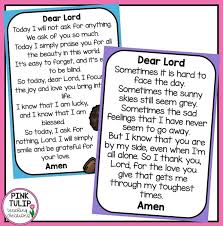 Dear Lord
Today I will not ask for anything.
We ask of you so much.
Today I simply praise you for all
the beauty in this world.
It's easy to forget, and it's easy
to be blind.
So today, dear Lord, I focus
the joy and love you bring into
life.
I know that I am lucky,
and I know that I am blessed.
So today, I ask for
nothing, Lord, I will simply
smile and be grateful for
your love.
Amen
Dear Lord
Sometimes it is hard to
face the day.
Sometimes the sunny
skies still seem grey.
Sometimes the sad
feelings that I have never
seem to go away.
But I know that you are
by my side, even when I'm
all alone. So I thank you,
Lord, for the love you
give that gets me
through my toughest
times.
Amen
PINK
TULIP